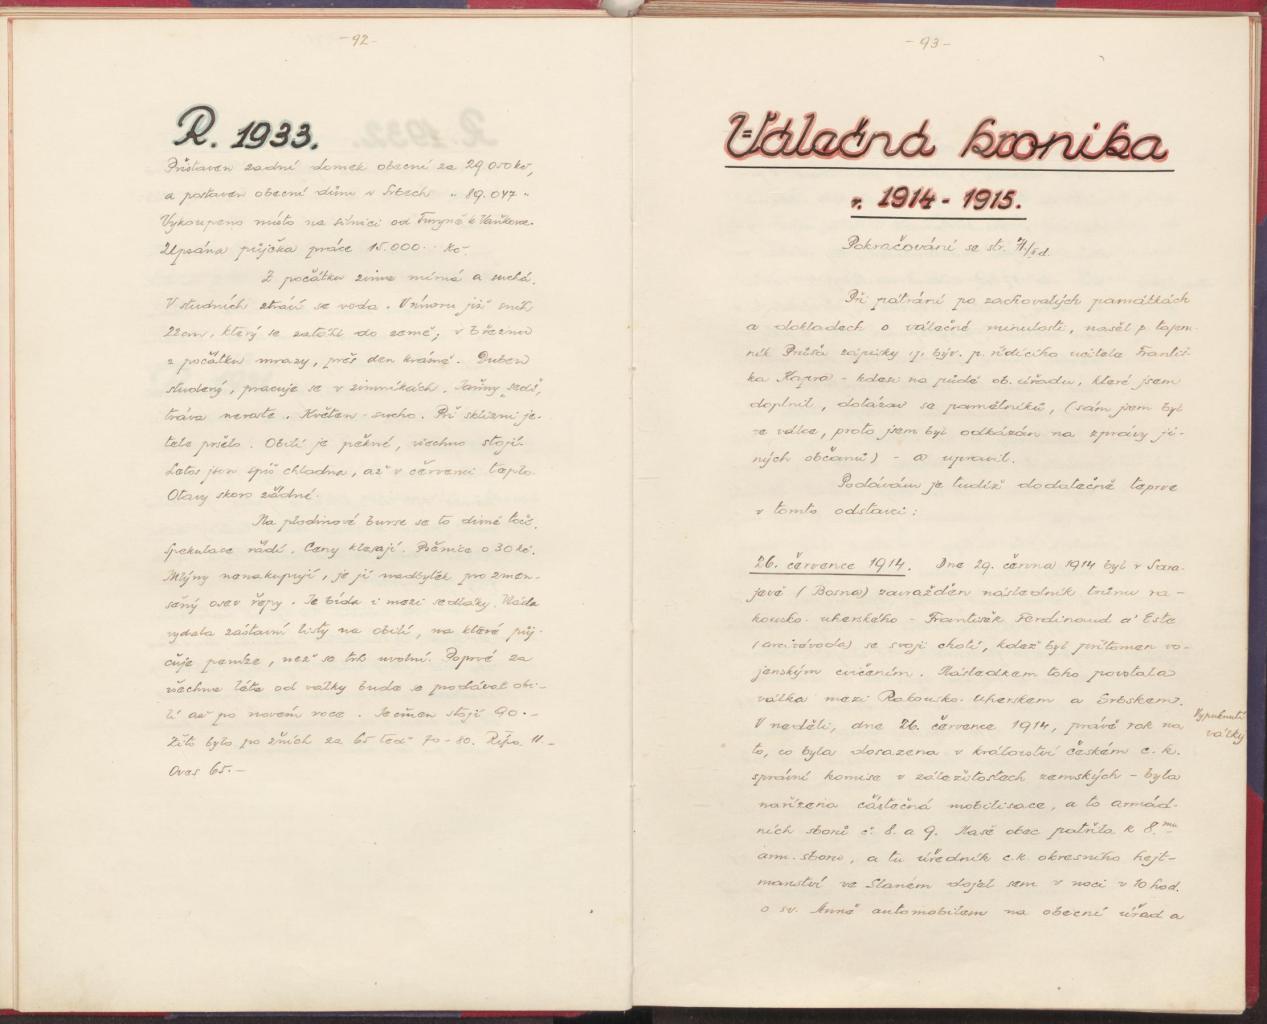 - 92 -
R. 1933.
Přistaven zadní domek obecní za 29.050 Kč,
a postaven obecní dům v Srbech „ 89.047 "
Vykoupeno místo na silnici od Tuřyně k Vaňkova.
Upsána půjčka práce 15.000 Kč.
Z počátku zima mírná a suchá.
V studních ztrácí se voda. V únoru již sníh
22 cm, který se zatočil do země; v březnu
z počátku mrazy, přes den krásně. Duben
studený, pracuje se v zimníkách. Jařiny „sedí",
tráva neroste. Květen - sucho. Při sklizni je-
tele pršelo. Obilí je pěkné, všechno stojí.
Letos jsou spíš chladna, až v červenci teplo.
Otavy skoro žádné.
Na plodinové burse se to dině točí.
Spekulace řádí. Ceny klesají. Pšenice o 30 Kč.
Mlýny nenakupují, je jí nadbytek pro zmen-
šený osev řepy. Je bída i mezi sedláky. Vláda
vydala zástavní listy na obilí, na které půj-
čuje peníze, než se trh uvolní. Poprvé za
všechna léta od války bude se prodávat obi-
lí až po novém roce. Ječmen stojí 90.-
Žito bylo po žních za 65 teď 70 - 80. Řípa 11.-
Oves 65.-
- 93 -
Válečná kronika
r. 1914 - 1915.
Pokračování se str.
Při pátrání po zachovalých památkách
a dokladech o válečné minulosti, našel p. tajem-
ník Průša zápisky p. býv. p. řídícího učitele Františ-
ka Kapra - kdesi na půdě ob. úřadu, které jsem
doplnil, dotázav se pamětníků, (sám jsem byl
ve válce, proto jsem byl odkázán na zprávy ji-
ných občanů) - a upravil.
Podávám je tudíž dodatečně teprve
v tomto odstavci:
26. července 1914. Dne 29. června 1914 byl v Sara-
jevě (Bosna) zavražděn následník trůnu ra-
kousko-uherského - František Ferdinand d'Este
(arcivévoda) se svojí chotí, když byl přítomen vo-
jenským cvičením. Následkem toho povstala
válka mezi Rakousko-Uherskem a Srbskem.
V neděli, dne 26. července 1914, právě rok na
to, co byla dosazena v království českém c. k.
správní komise v záležitostech zemských - byla
nařízena částečná mobilisace, a to armád-
ních sborů č. 8. a 9. Naše obec patřila k 8.mu
arm. sboru, a tu úředník c.k. okresního hejt-
manství ve Slaném dojel sem v noci v 10 hod.
o sv. Anně automobilem na obecní úřad a
Vypuknutí
války